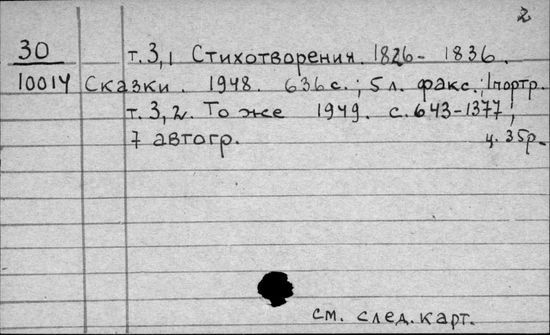 2
30 т. 3,1 Стихотворения. 1826- 1836.
10014 Сказки. 1948. 636 с.; 5 л. факс.; 1 портр.
т. 3,2. То же 1949. с. 643-1377,
7 автогр. ц. 35р.
см. след. карт.